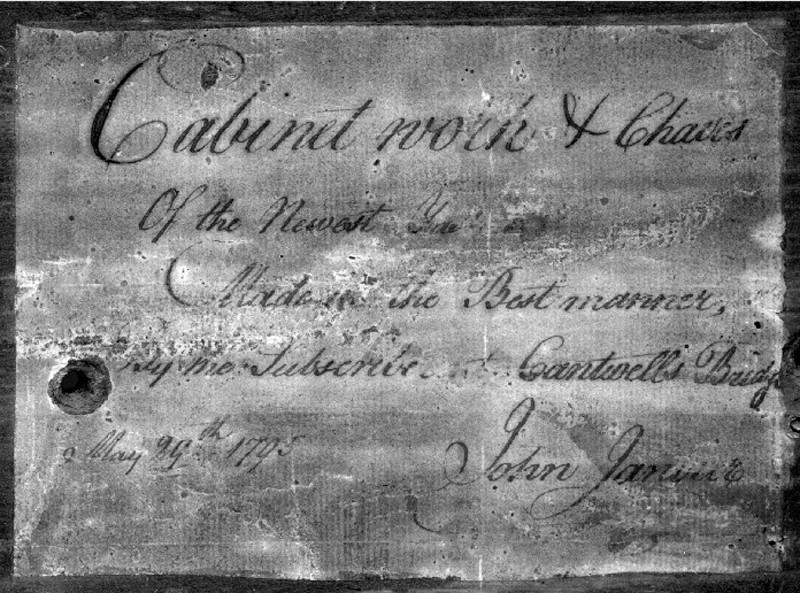 Cabinet work & Chaires
Of the Newest
Made in the Best manner,
By me Subscribe at Cantwells Bridge
May 29th 1795
John Janvier